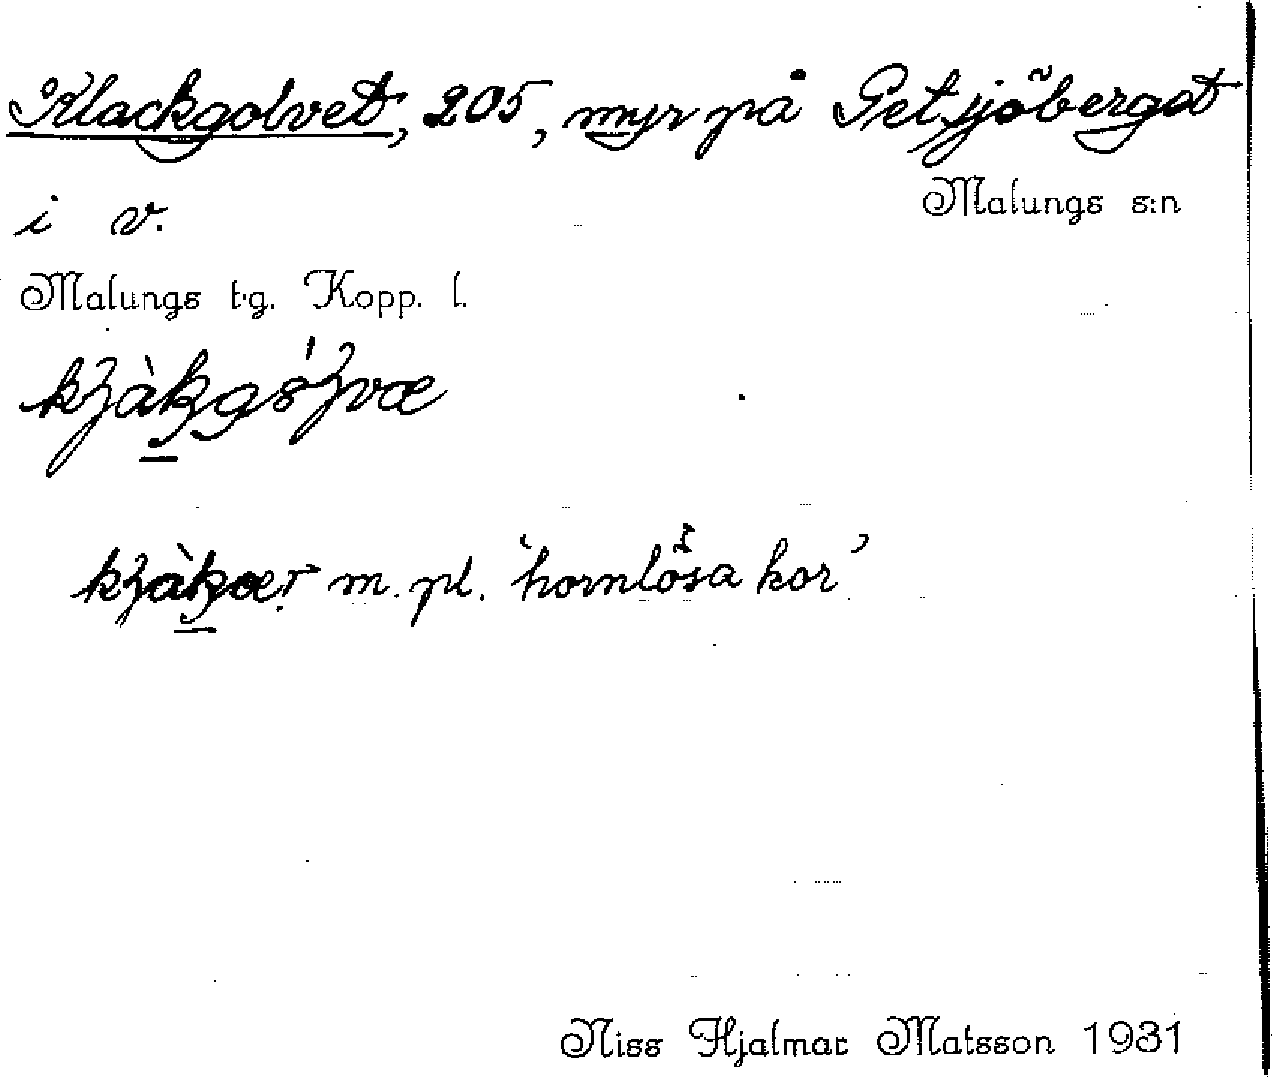 Klackgolvet, 205, myr på Petsjöberget
Malungs s:n
i v.
Malungs tg. Kopp. l.
m. pl. 'hornlösa kor'
Niss Hjalmar Matsson 1931